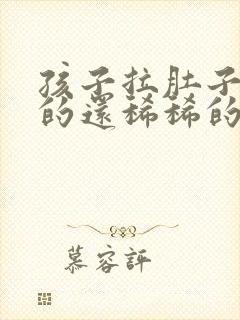 孩子拉肚子
的還稀稀的
慕容評